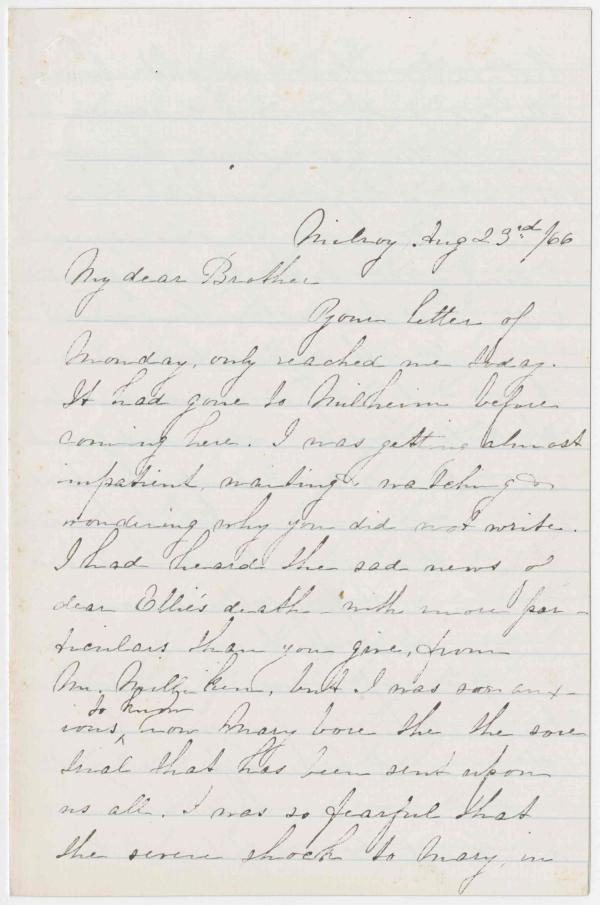 Milroy Aug 23rd/66
My dear Brother
Your letter of
Monday, only reached me today.
It had gone to Milheim before
coming here. I was getting almost
impatient, waiting & watching &
wondering why you did not write.
I had heard the sad news of
dear Ellie's death - with more par-
ticulars than you give, from
Mr. Milliken, but I was so anx-
to know
ious, how Mary bore the the sore
trial that has been sent upon
us all. I was so fearful that
the severe shock to Mary, in